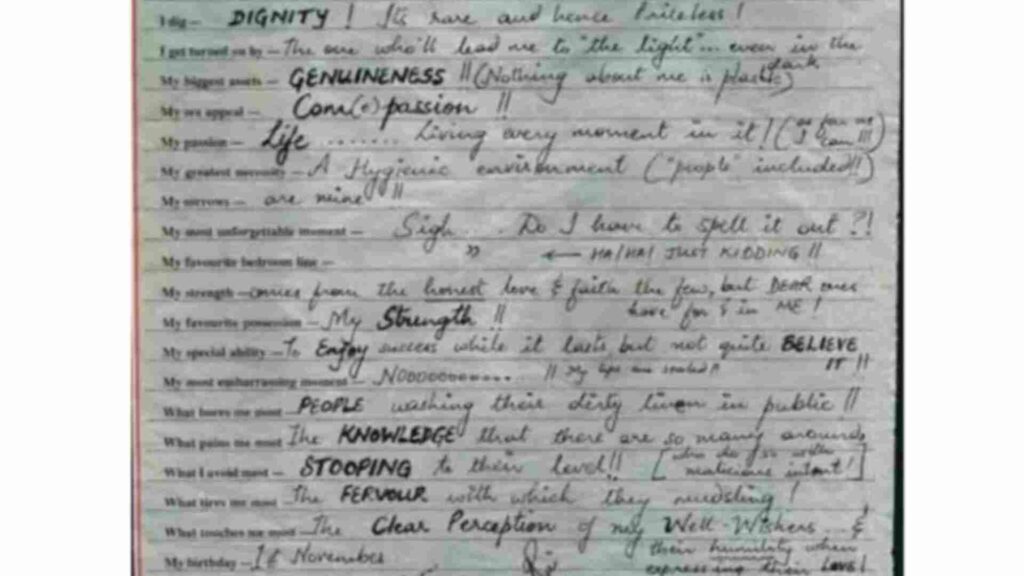 I dig — DIGNITY! Its rare and hence Priceless!
I get turned on by — The one who'll lead me to "the light"... even in the dark
My biggest assets — GENUINENESS!! (Nothing about me is plastic)
My sex appeal — Com(e)passion!!
My passion — Life ....... Living every moment in it! (as far as I can!!!)
My greatest necessity — A Hygienic environment ("people" included!!)
My sorrows — are mine!!
My most unforgettable moment — Sigh... Do I have to spell it out?!
My favourite bedroom line — " ← HA!HA! JUST KIDDING!!
My strength — comes from the honest love & faith the few, but DEAR ones have for & in ME!
My favourite possession — My Strength!!
My special ability — To Enjoy success while it lasts, but not quite BELIEVE IT!!
My most embarrassing moment — NOooooooo.... !! My lips are sealed!!
What bores me most — PEOPLE washing their dirty linen in public!!
What pains me most — The KNOWLEDGE that there are so many around, [who do so with malicious intent!]
What I avoid most — STOOPING to their level!!
What tires me most — The FERVOUR with which they mudsling!
What touches me most — The Clear Perception of my Well-Wishers...& their humility when expressing their LOVE!
My birthday — November